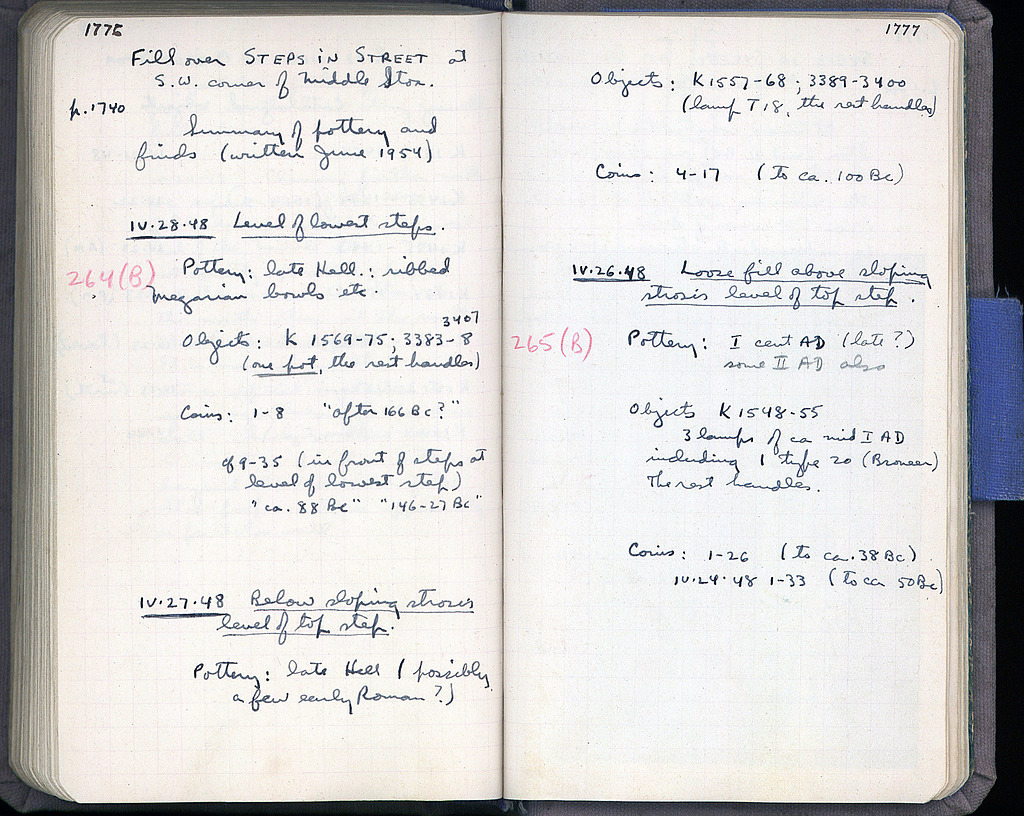 1776
Fill over STEPS in STREET at
S.W. corner of Middle Stoa.
p. 1740
Summary of pottery and
finds (written June 1954)
IV.28.48 Level of lowest steps.
264(B)
Pottery: late Hell.: ribbed
megarian bowls etc.
3407
Objects: K 1569-75; 3383-8
(one pot, the rest handles)
Coins: 1-8 "after 166 Bc?"
cf 9-35 (in front of steps at
level of lowest step)
"ca. 88 Bc" "146-27 Bc"
IV.27.48 Below sloping strosis
level of top step.
Pottery: late Hell (possibly
a few early Roman?)
1777
Objects: K1557-68; 3389-3400
(lamp T 18, the rest handles)
Coins: 4-17 (to ca. 100 Bc)
IV.26.48 Loose fill above sloping
strosis level of top step.
265(B)
Pottery: I cent AD (late?)
some II AD also
Objects K 1548-55
3 lamps of ca mid I AD
including 1 type 20 (Broneer)
The rest handles.
Coins: 1-26 (to ca. 38 Bc)
IV.24.48 1-33 (to ca 50 Bc)